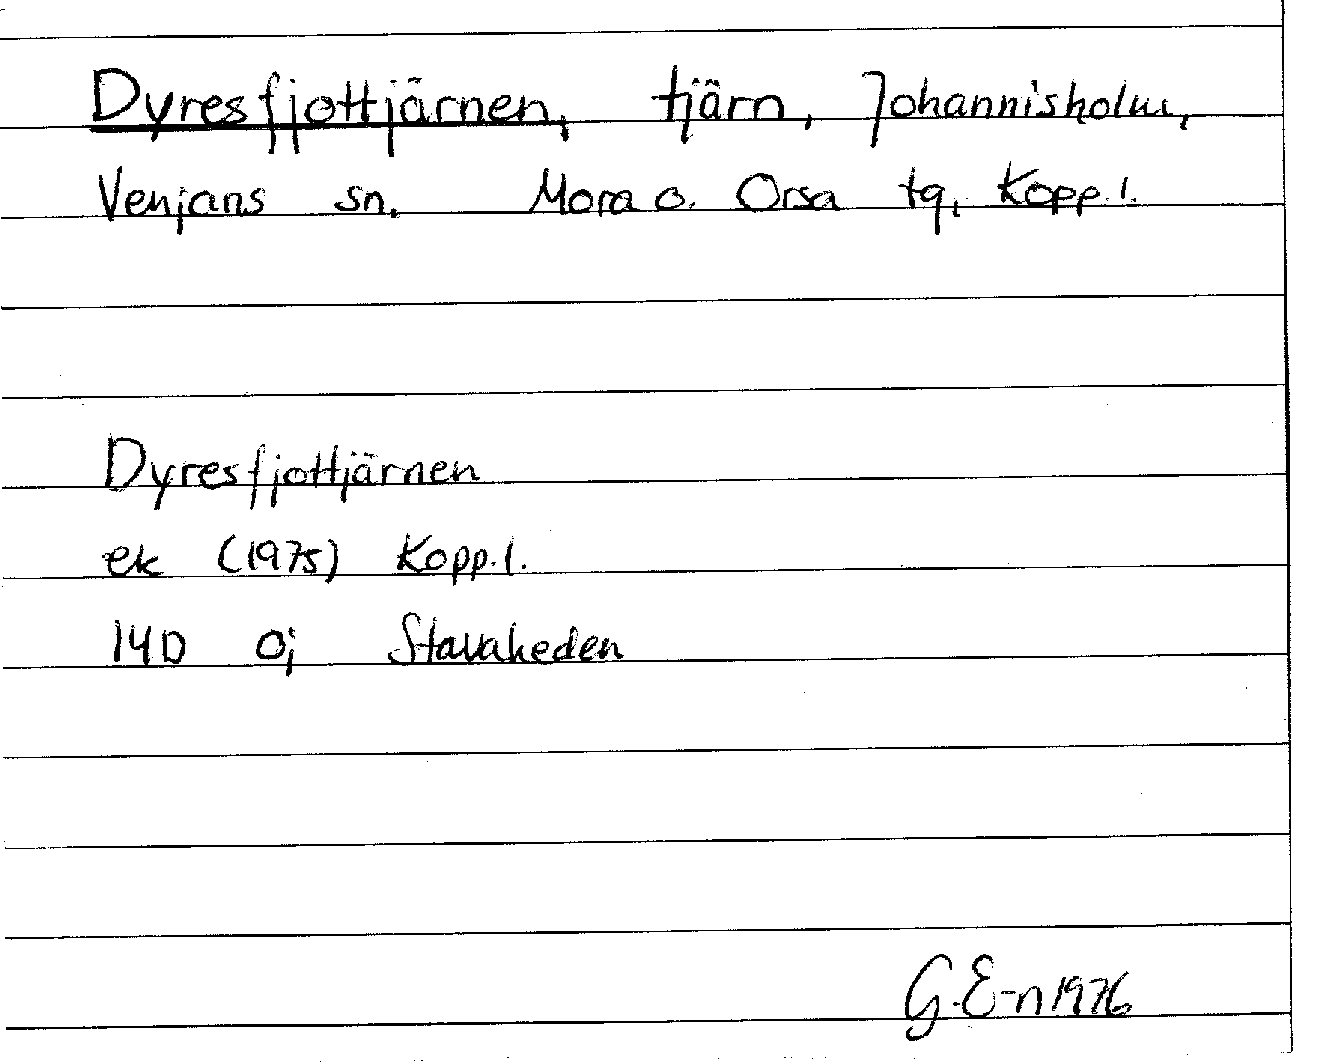 Dyresfjottjärnen, tjärn, Johannisholm,
Venjans sn. Mora o. Orsa tg, Kopp. l.
Dyresfjottjärnen
ek (1975) Kopp. l.
14D 0j Stavaheden
G. E-n 1976